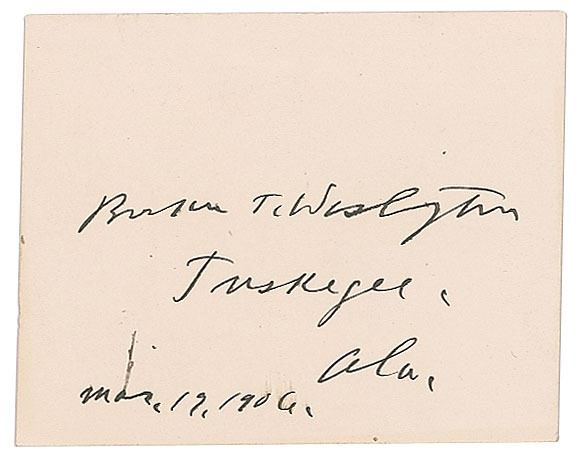 Booker T. Washington
Tuskegee,
Ala.
Mar. 19, 1906.